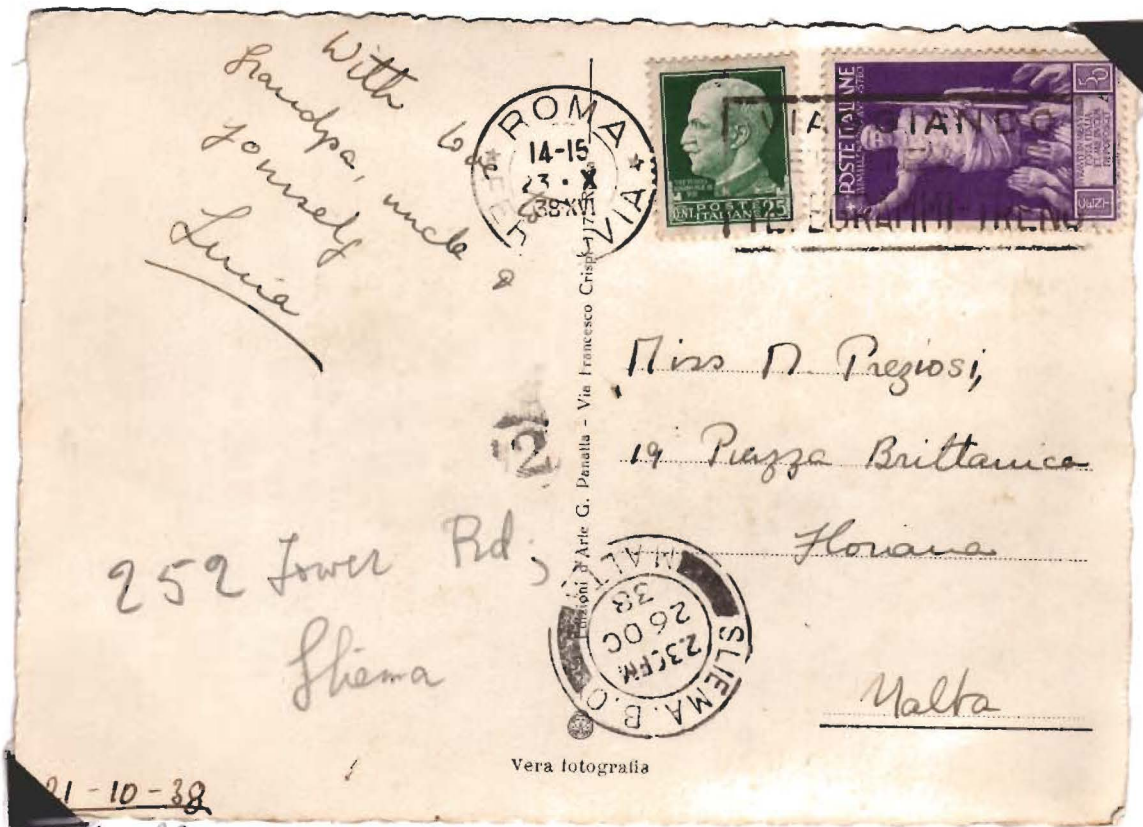 With love to
Grandpa, uncle &
yourself
Lucia
ROMA
FERROVIA
14-15
23 · X
38 XVI
POSTE
ITALIANE 25
POSTE ITALIANE
50
VIAGGIANDO
TELEGRAMMI TRENO
Edizioni d'Arte G. Panatta - Via Francesco Crispi
2
Miss M. Preziosi,
19 Piazza Brittanica
Floriana
Malta
252 Tower Rd;
Sliema
SLIEMA. B.O
MALTA
2.30PM
26 OC
38
Vera fotografia
21-10-38